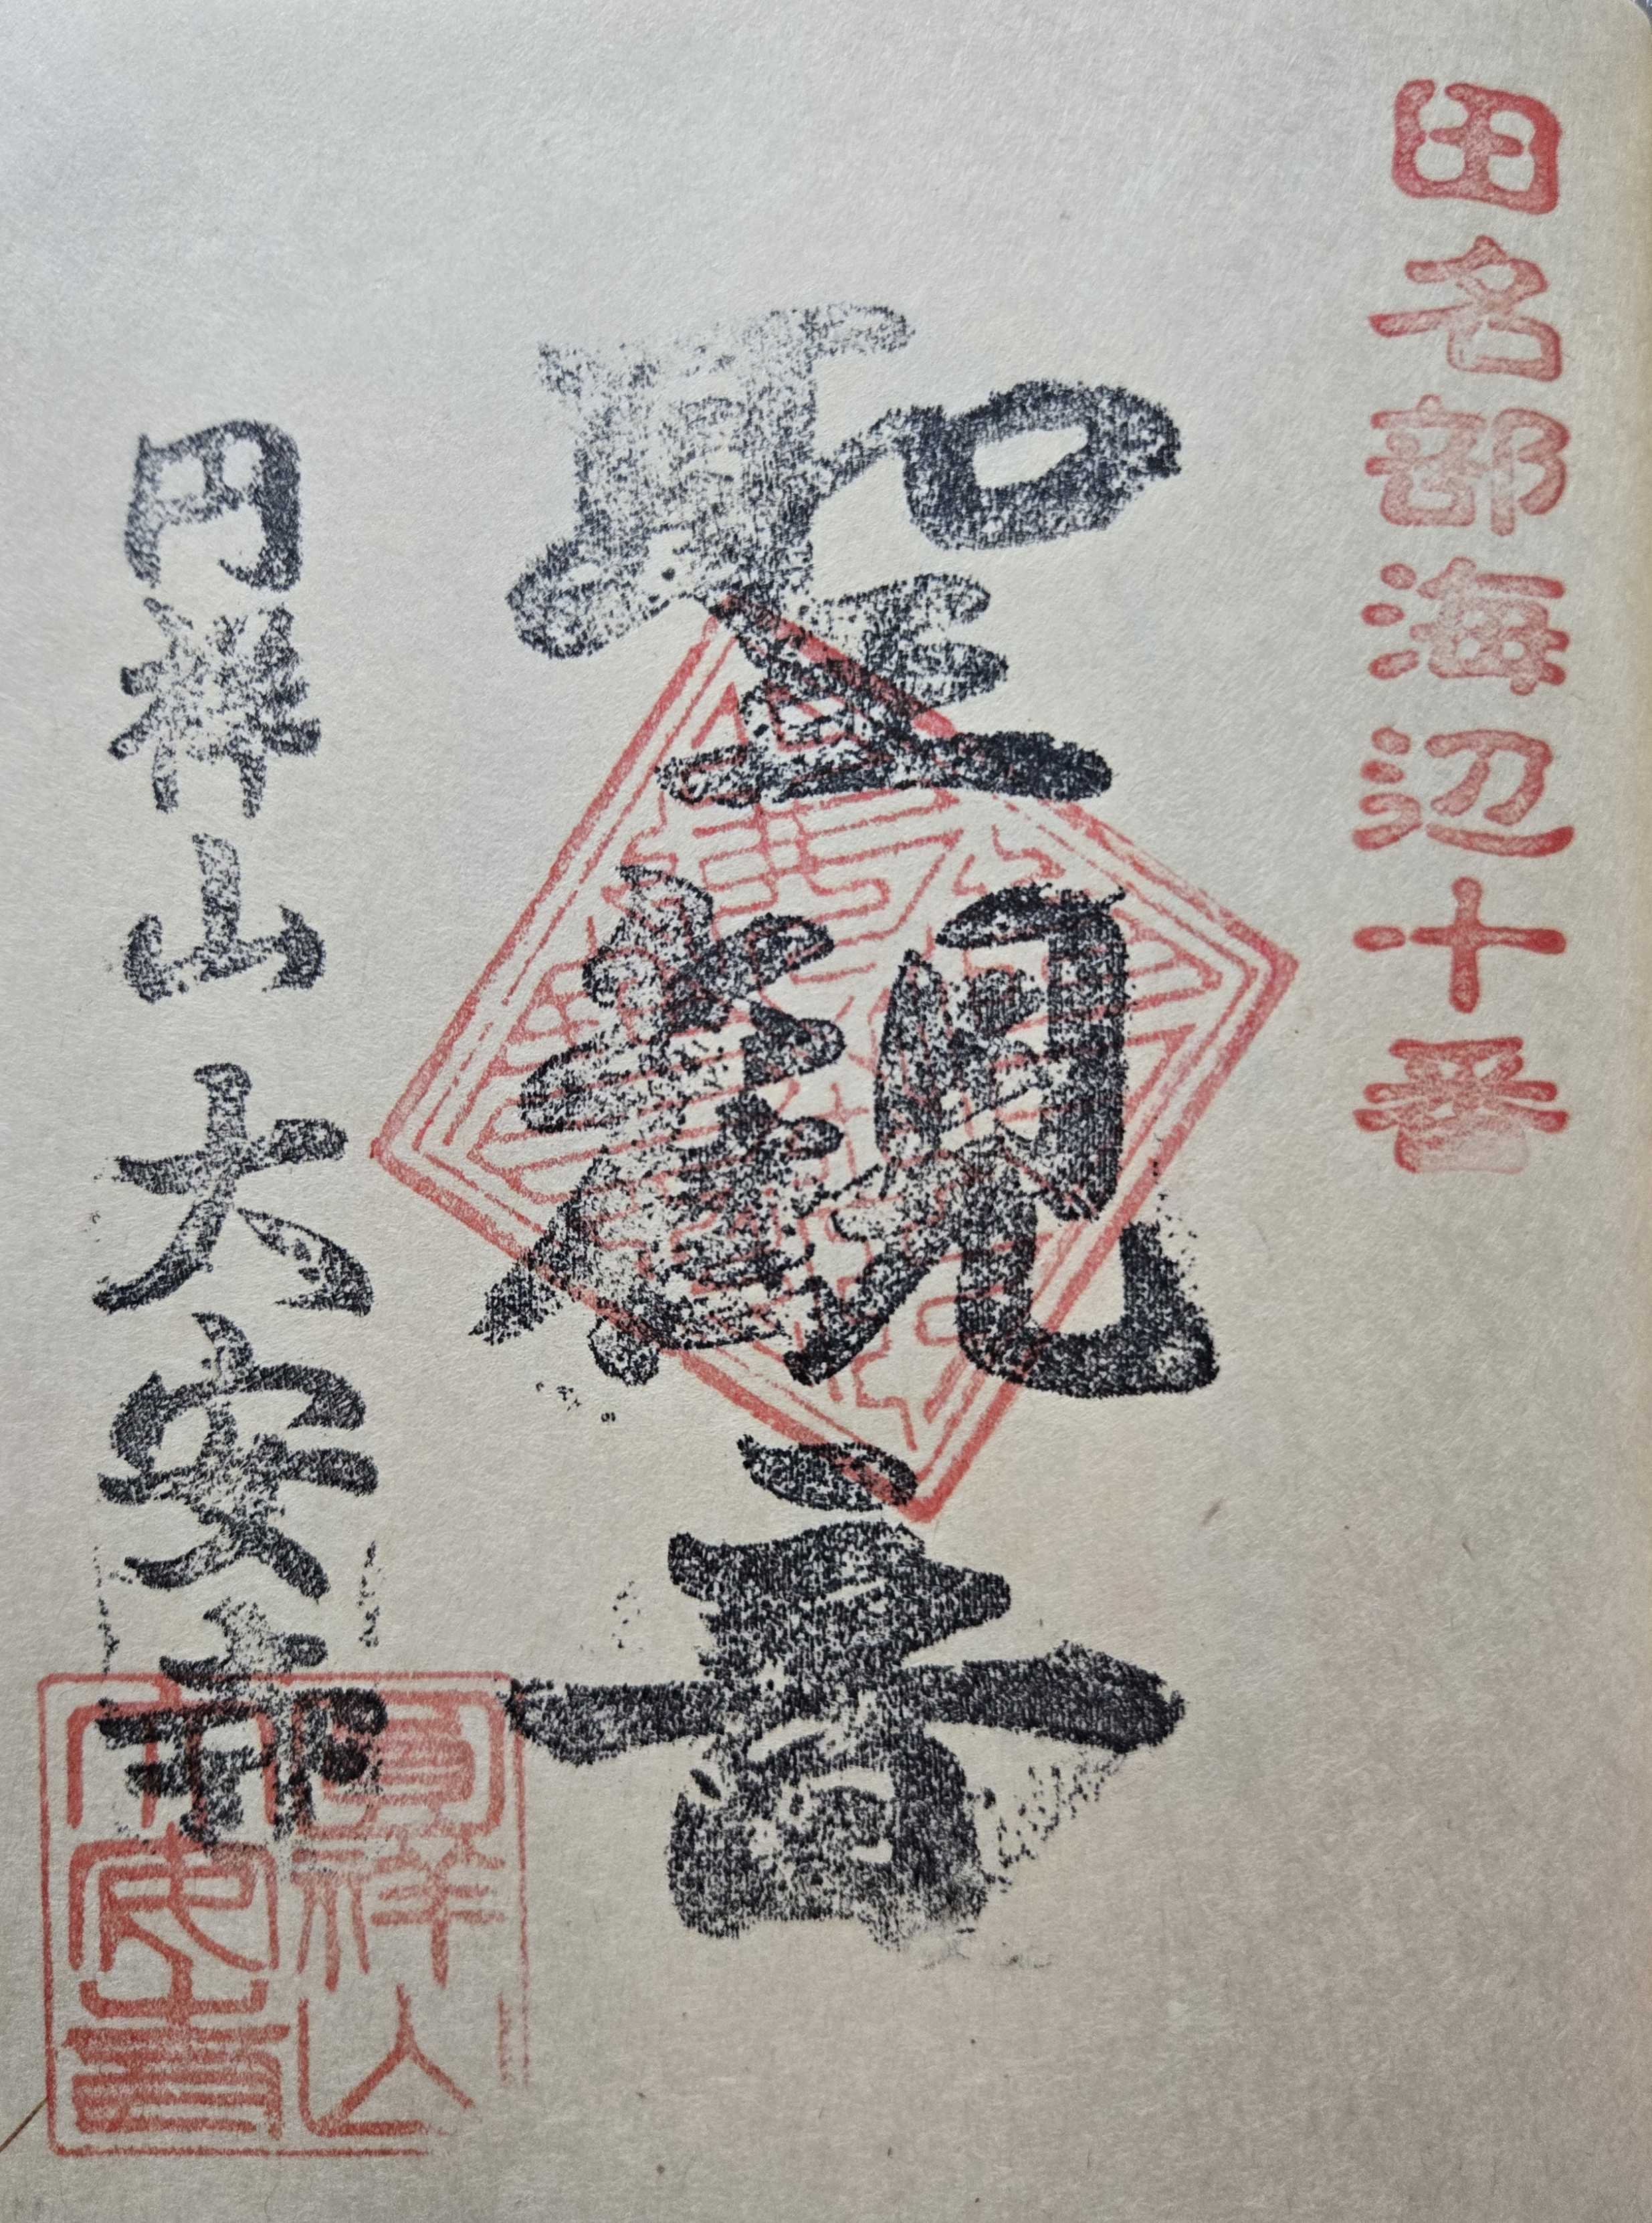 田名部海辺十番
聖観音
円祥山 大安寺
圓祥山
大安寺